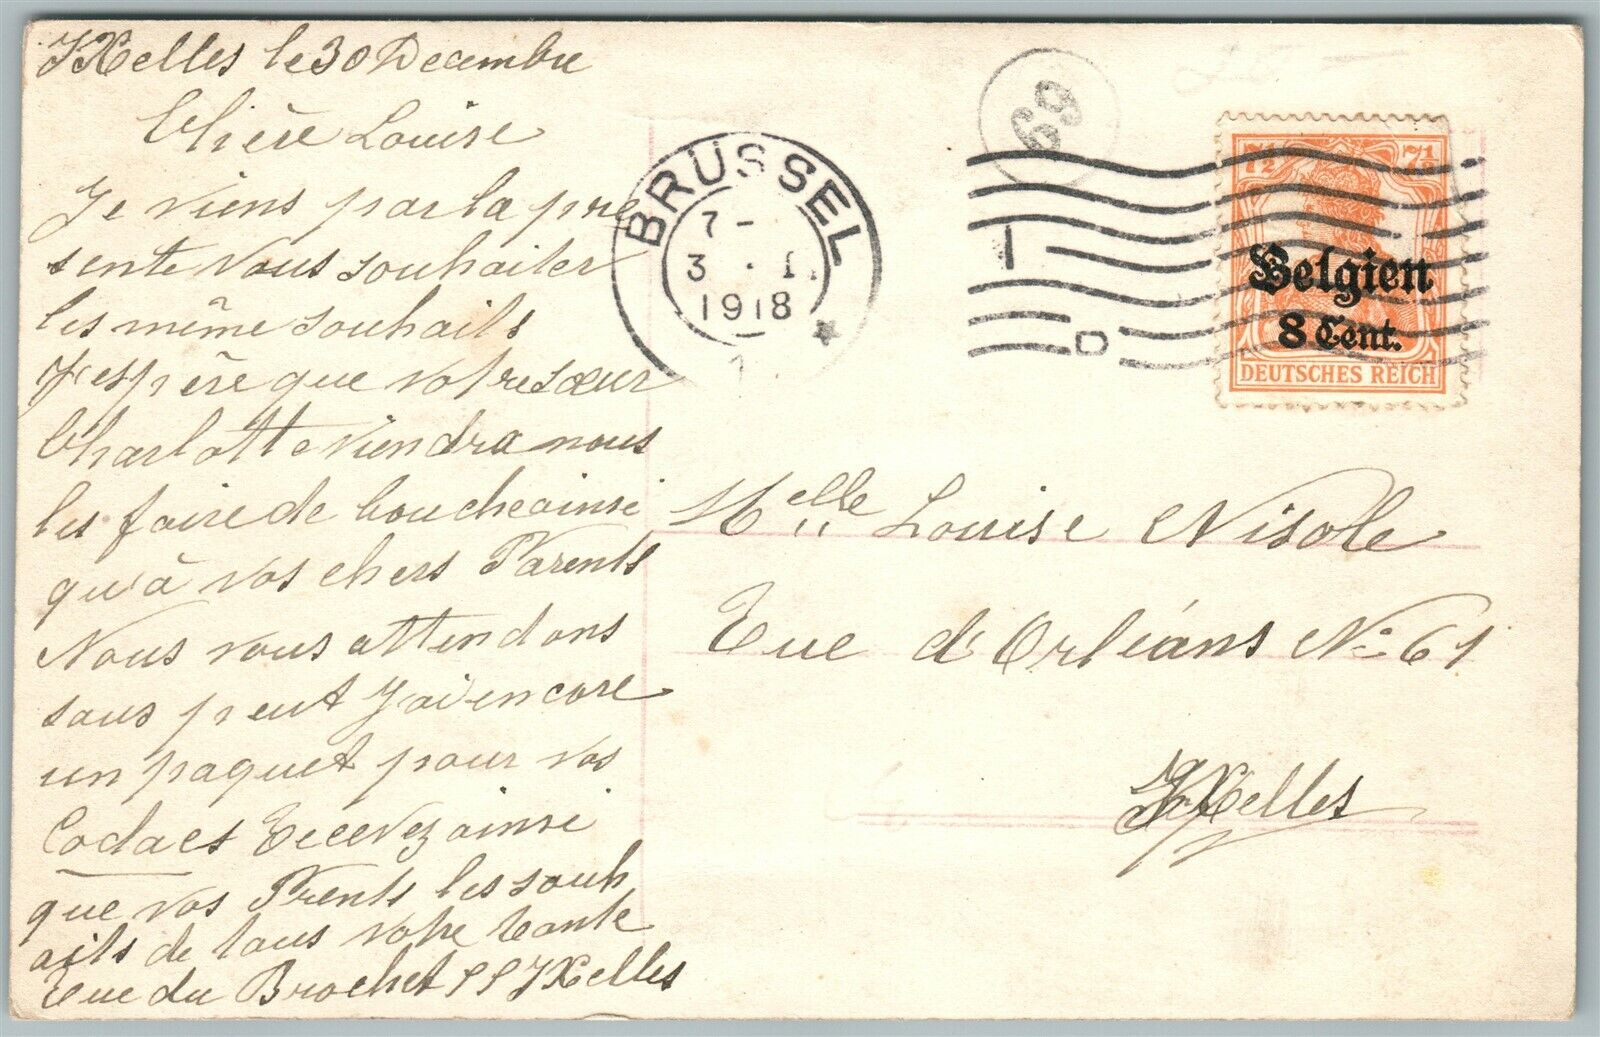 IXelles le 30 Decembre
Chière Louise
Je viens par la pré
sente vous souhaiter
les même souhaits
J'espère que votre sœur
Charlotte viendra nous
les faire de bouche ainsi
qu'à vos chers Parents
Nous vous attendons
sans peut J'ai encore
un paquet pour vos
Codacs Recevez ainsi
que vos Prents les souh
aits de tous votre tante
Rue du Brochet IXelles
69
BRÜSSEL
7 -
3 . I.
1918
1
*
7½ 7½
Belgien
8 Cent.
DEUTSCHES REICH
Melle Louise Nisole
Rue d'Orléans No 61
IXelles